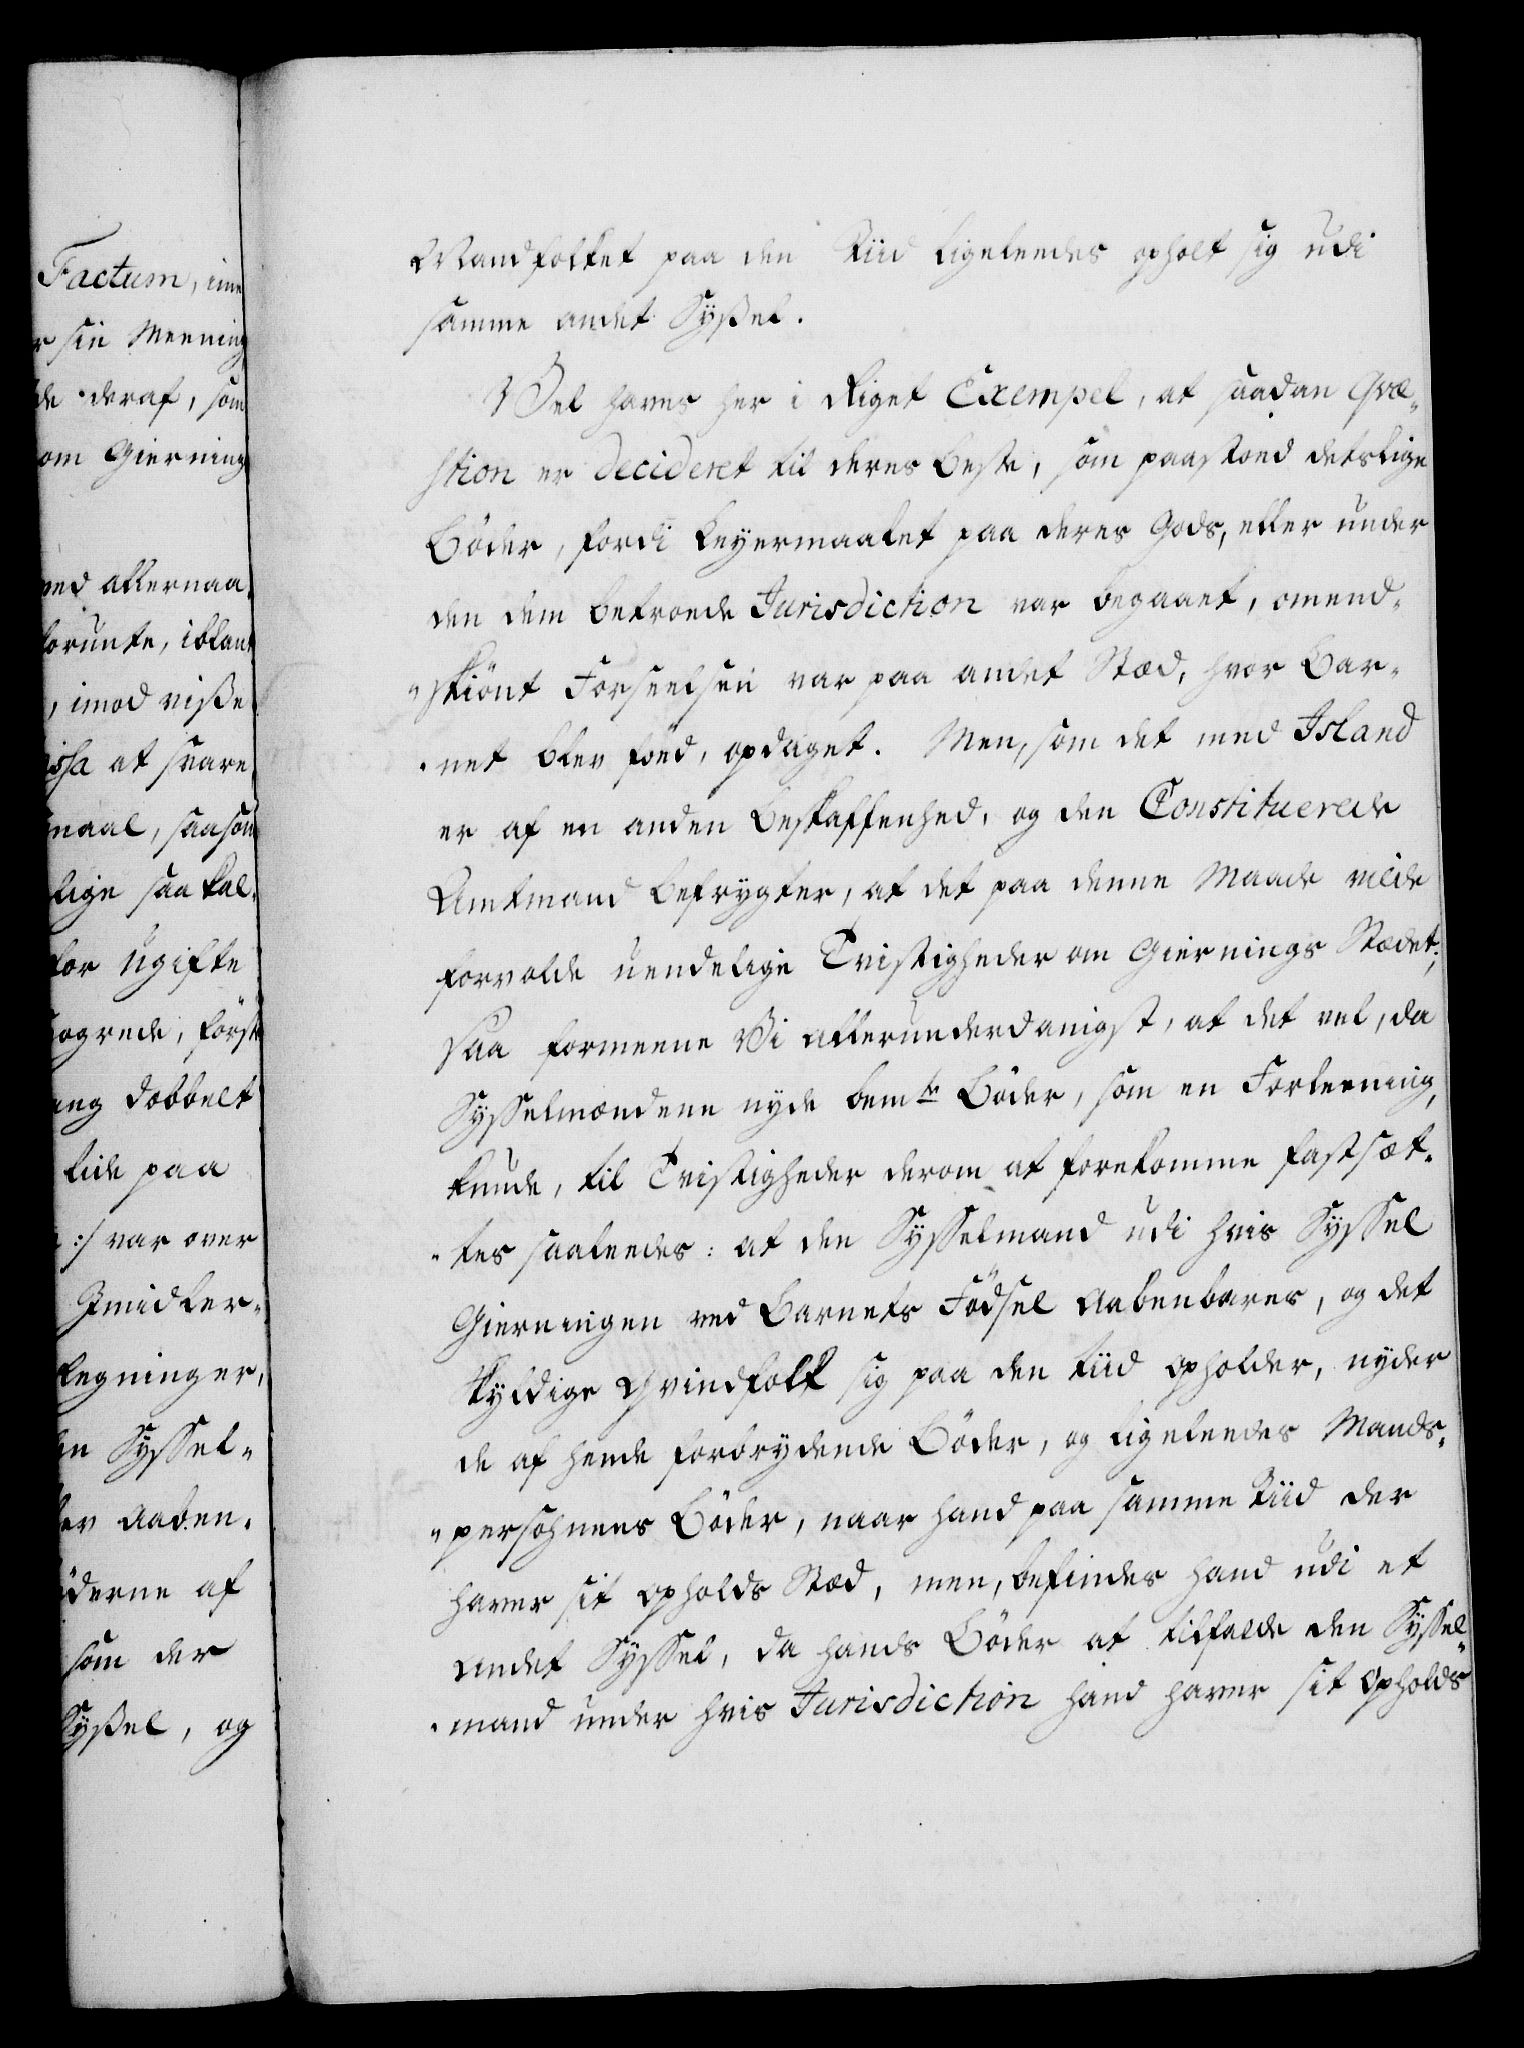 Factum, im
r sin Meening
de deraf, som
om Giernings
ved allernaa,
orunte, iblant
, imod visse
issa at svare
maal, saasom
lige saa kal,
for ugifte
ogrede, først
ang dobbelt
tide paa
:/ var over
Imidler-
legninger,
en Syssel-
lev aaben,
øderne af
som der
Syssel, og
Mandfolket paa den Tiid ligeleedes opholt sig udi
samme andet Sysßel.
Vel haves her i Riget Exempel, at saadan Qvæ-
stion er decideret til deres beste, som paastoed detslige
Bøder, fordi Leyermaalet paa deres Gods, eller under
den dem betroede Jurisdiction var begaaet, omend-
"skiønt Forseelsen var paa andet Stæd, hvor Bar-
"net blev fød, opdaget. Men, som det med Island
er af en anden Beskaffenhed, og den Constituerede
Amtmand befrygter, at det paa denne Maade vilde
forvolde uendelige Tvistigheder om Giernings Stædet;
saa formeene Vi allerunderdanigst, at det vel, da
Sysselmændene nyde bemte Bøder, som en Forleening,
kunde, til Tvistigheder derom at forekomme fastsæt-
"tes saaleedes: at den Sysselmand udi hvis Syssel
Gierningen ved Barnets Fødsel aabenbares, og det
skyldige Qvindfolk sig paa den tiid opholder, nyder
de af hende forbrydende Bøder, og ligeleedes Mands-
"persohnens Bøder, naar hand paa samme Tiid der
haver sit Opholds Stæd, men, befindes hand udi et
andet Syssel, da hands Bøder at tilfalde den Syssel-
"mand under hvis Jurisdiction hand haver sit Opholds